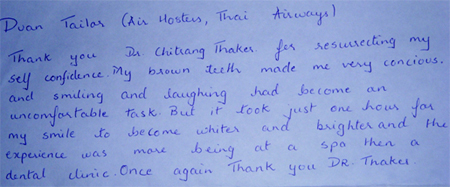 Duan Tailor (Air Hostess, Thai Airways)
Thank you Dr. Chitrang Thaker. for resurrecting my
self confidence. My brown teeth made me very concious.
and smiling and laughing had become an
uncomfortable task. But it took just one hour for
my smile to become whiter and brighter and the
experience was more being at a spa then a
dental clinic. Once again Thank you DR. Thaker.